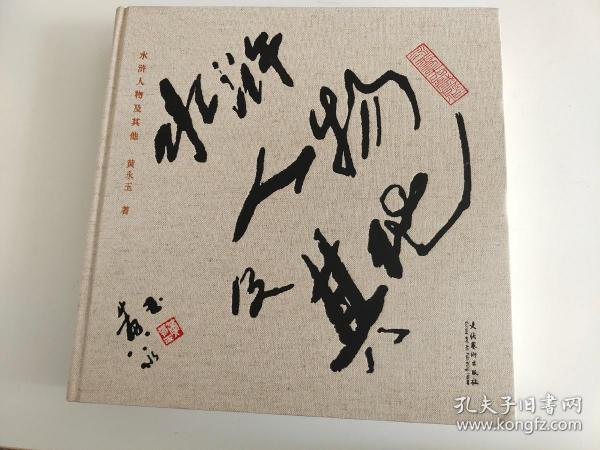 水浒人物及其他 黄永玉 著
水浒
人物
及其他
黄永玉
文化艺术出版社
孔夫子旧书网
www.kongfz.com